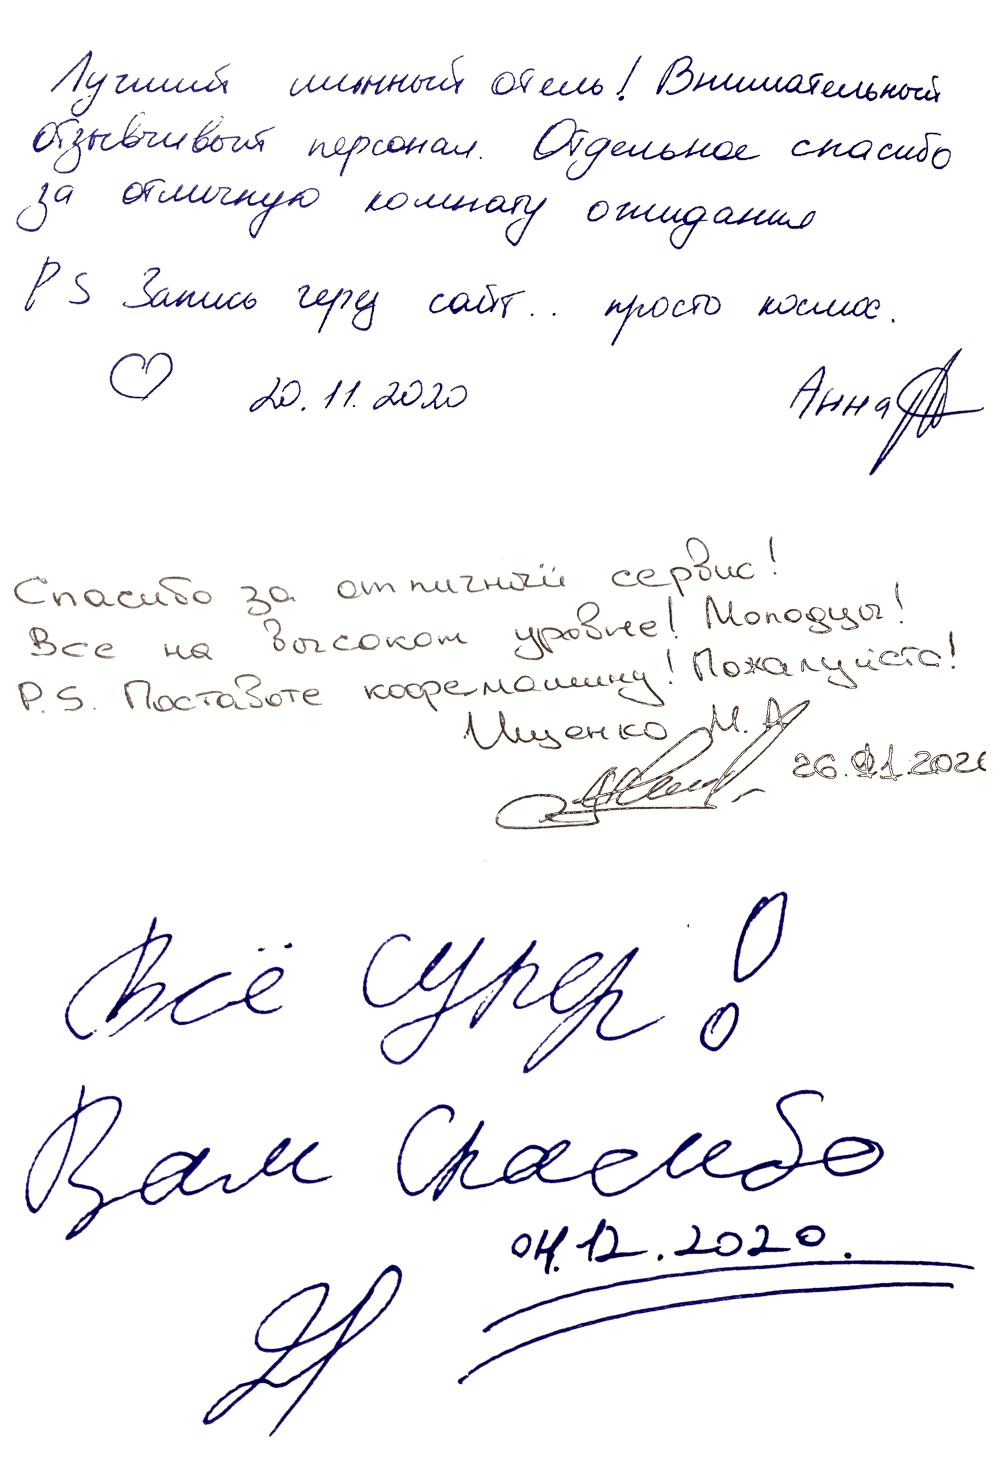 Лучший шинный отель! Внимательный
отзывчивый персонал. Отдельное спасибо
за отличную комнату ожидания
P S Запись через сайт.. просто космос.
20.11.2020 Анна
Спасибо за отличный сервис!
Все на высоком уровне! Молодцы!
P.S. Поставьте кофемашину! Пожалуйста!
Ищенко М.А.
26.11.2020
Всё супер!
Вам Спасибо
04.12.2020.